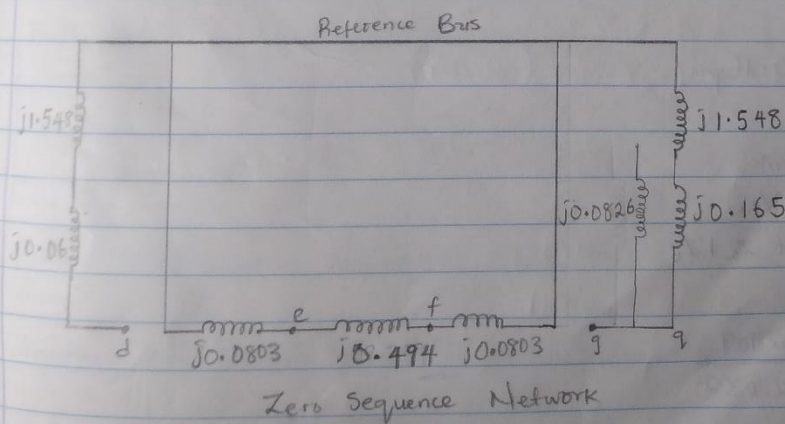 Reference Bus
j1.548
j1.548
j0.0826
j0.165
j0.06
e
f
d
g
q
j0.0803
j0.494
j0.0803
Zero Sequence Network